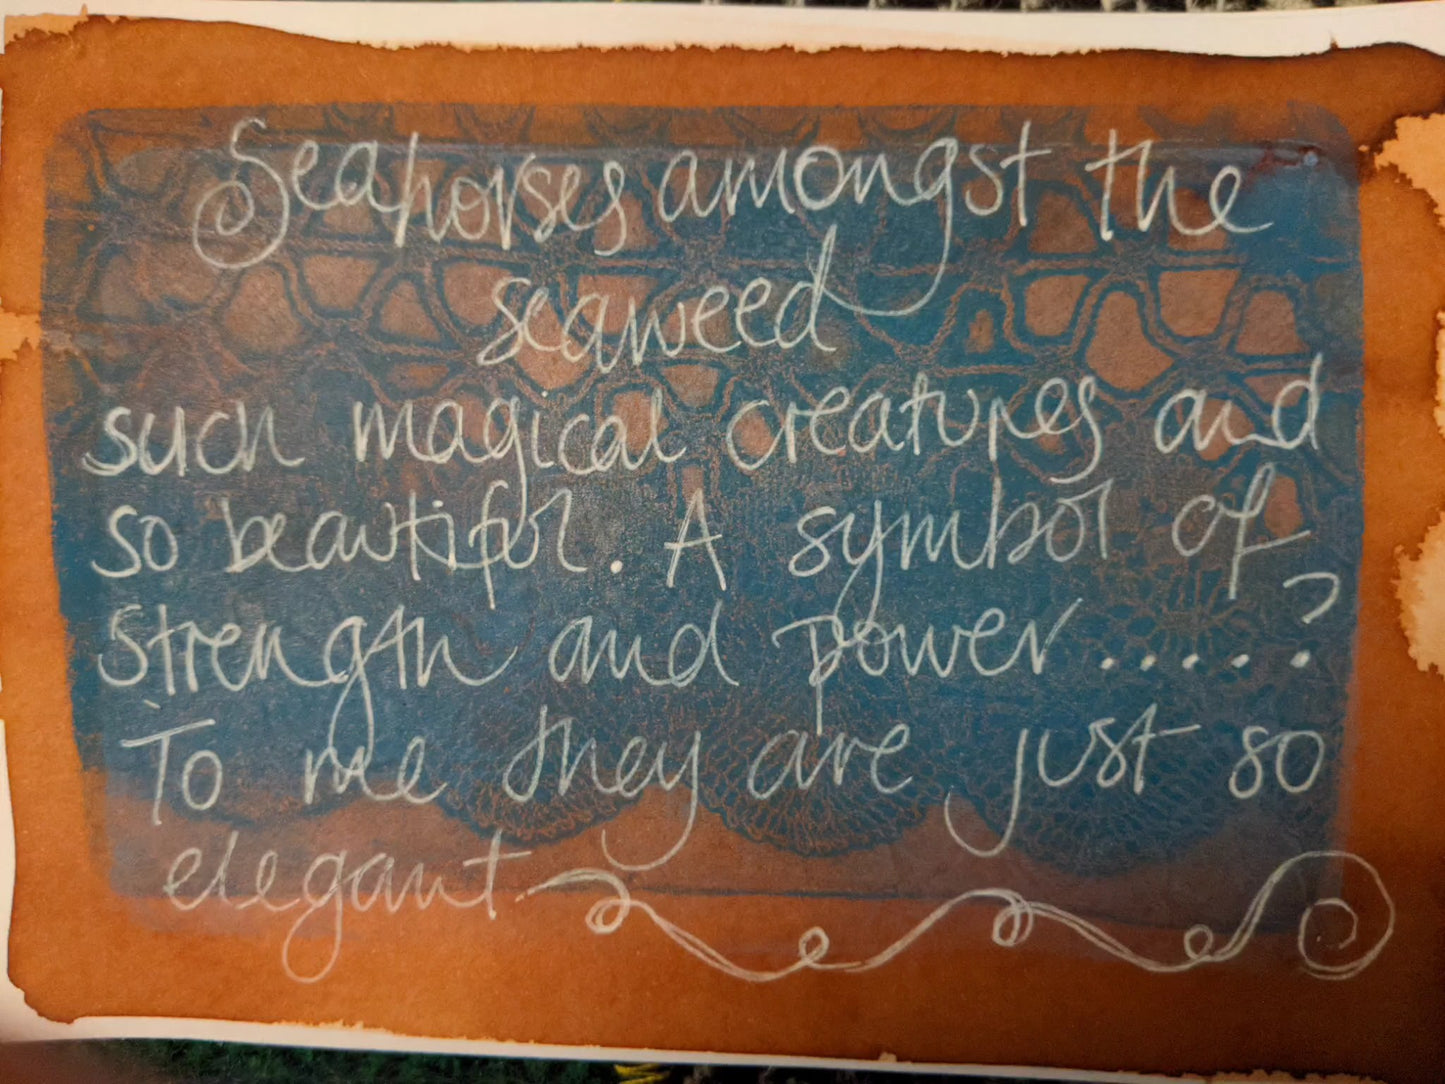 Seahorses amongst the
seaweed
such magical creatures and
so beautiful. A symbol of
strength and power.....?
To me they are just so
elegant